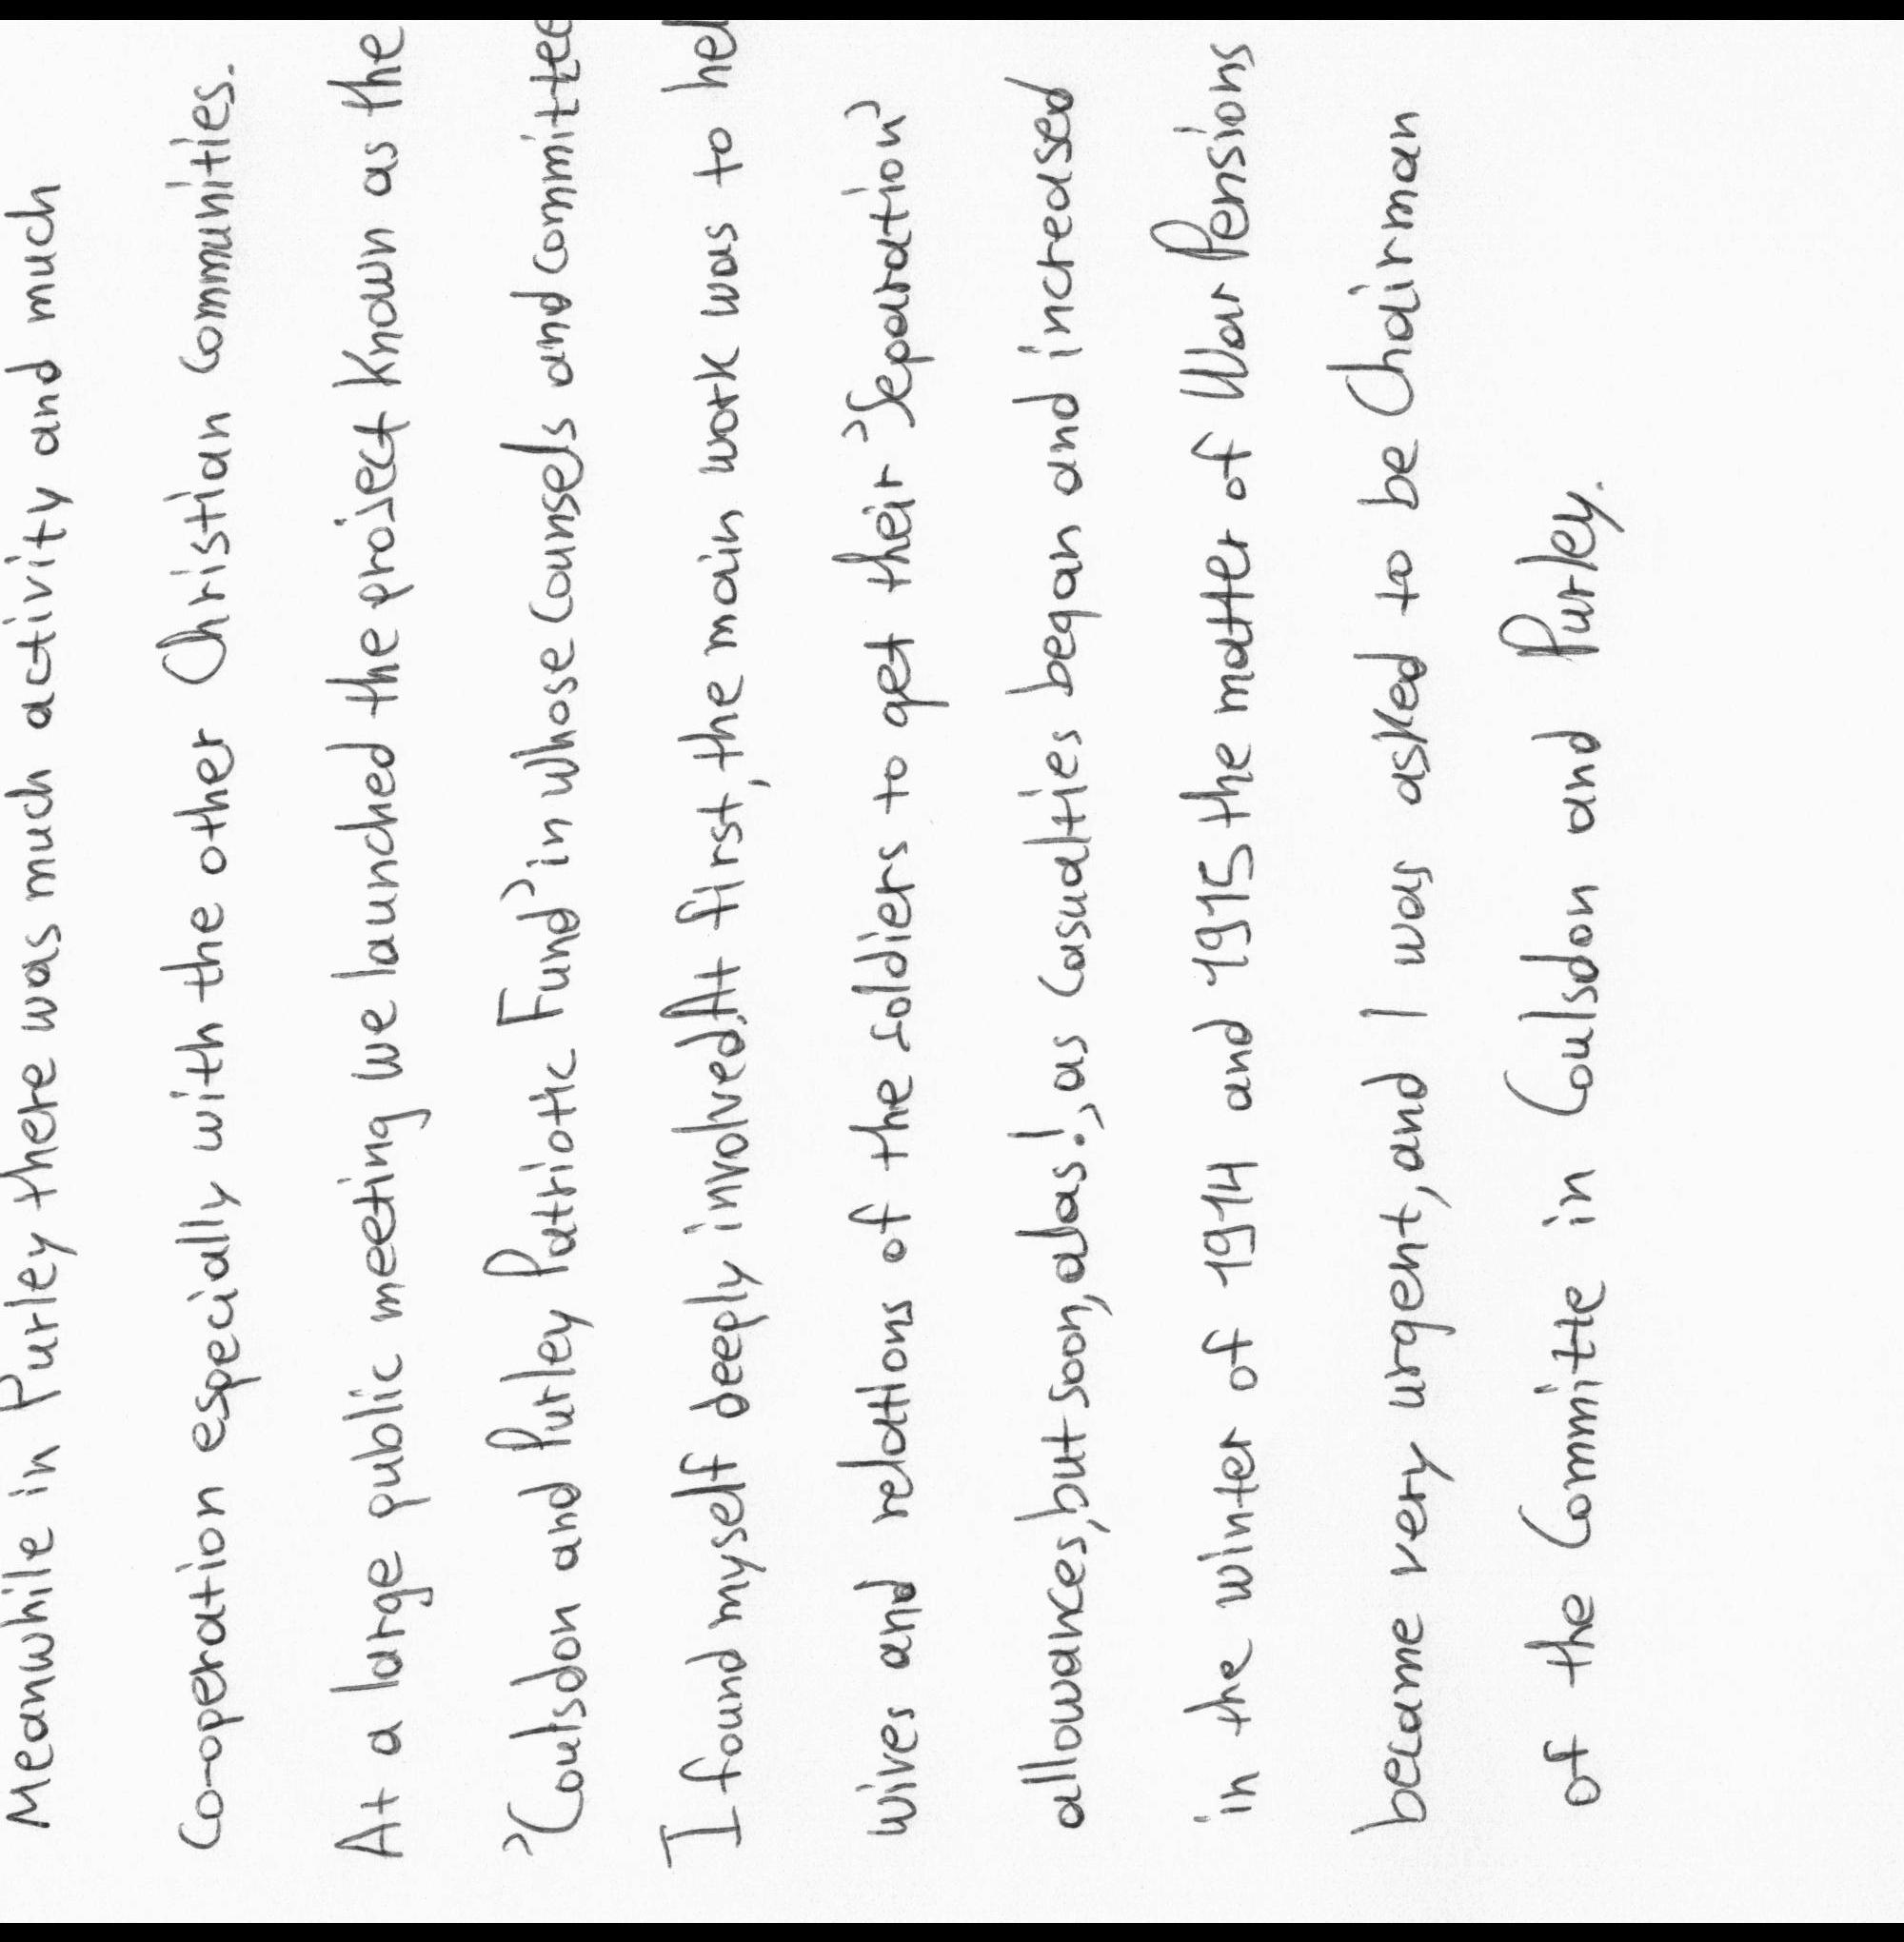 Meanwhile in Purley there was much activity and much
Co-operation especially with the other Christian Communities.
At a large public meeting we launched the project known as the
'Coulsdon and Purley Patriotic Fund' in whose Counsels and committee
I found myself deeply involved. At first, the main work was to hel
wives and relations of the soldiers to get their 'Separation'
allowances, but soon, alas!, as casualties began and increased
in the winter of 1914 and 1915 the matter of War Pensions
became very urgent, and I was asked to be Chairman
of the Committe in Coulsdon and Purley.